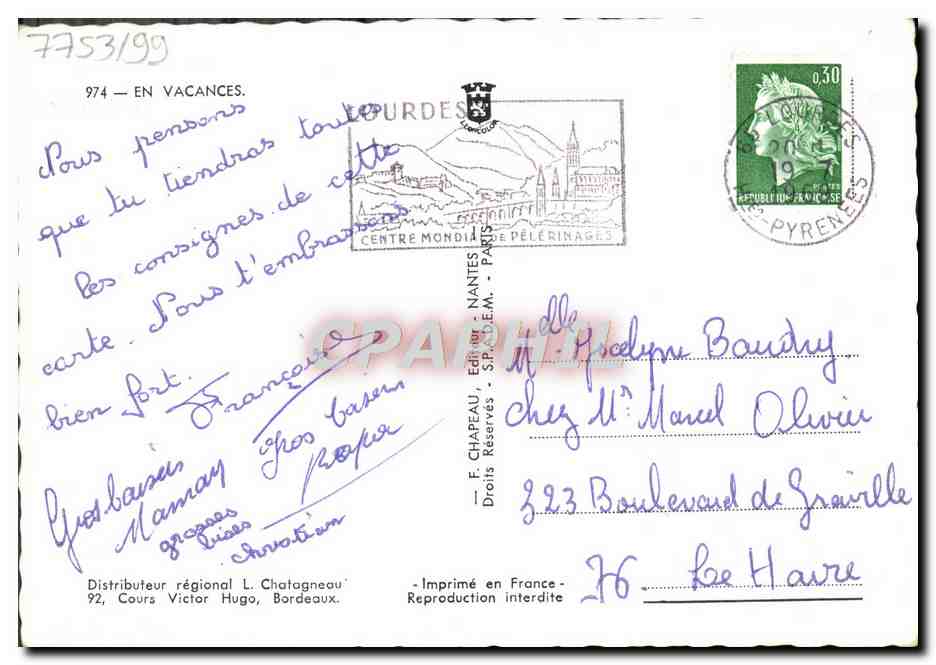 7753/99
974 — EN VACANCES.
Nous pensons
que tu tiendras toutes
les consignes de cette
carte. Nous t'embrassons
bien fort.
Françoise
Gros baisers
Maman
Gros baisers
Papa
grosses
bises
Christian
LOURDES
LEONCOLOR
CENTRE MONDIAL DE PÉLERINAGES
0,30
POSTES
REPUBLIQUE FRANÇAISE
LOURDES
20
19 - 7
Htes-PYRENEES
CPAPHIL
— F. CHAPEAU, Editeur - NANTES —
Droits Réservés - S.P.A.D.E.M. - PARIS
Mdlle Jocelyne Baudry
chez Mr Marcel Olivier
323 Boulevard de Graville
76. Le Havre
Distributeur régional L. Chatagneau
92, Cours Victor Hugo, Bordeaux.
- Imprimé en France -
Reproduction interdite